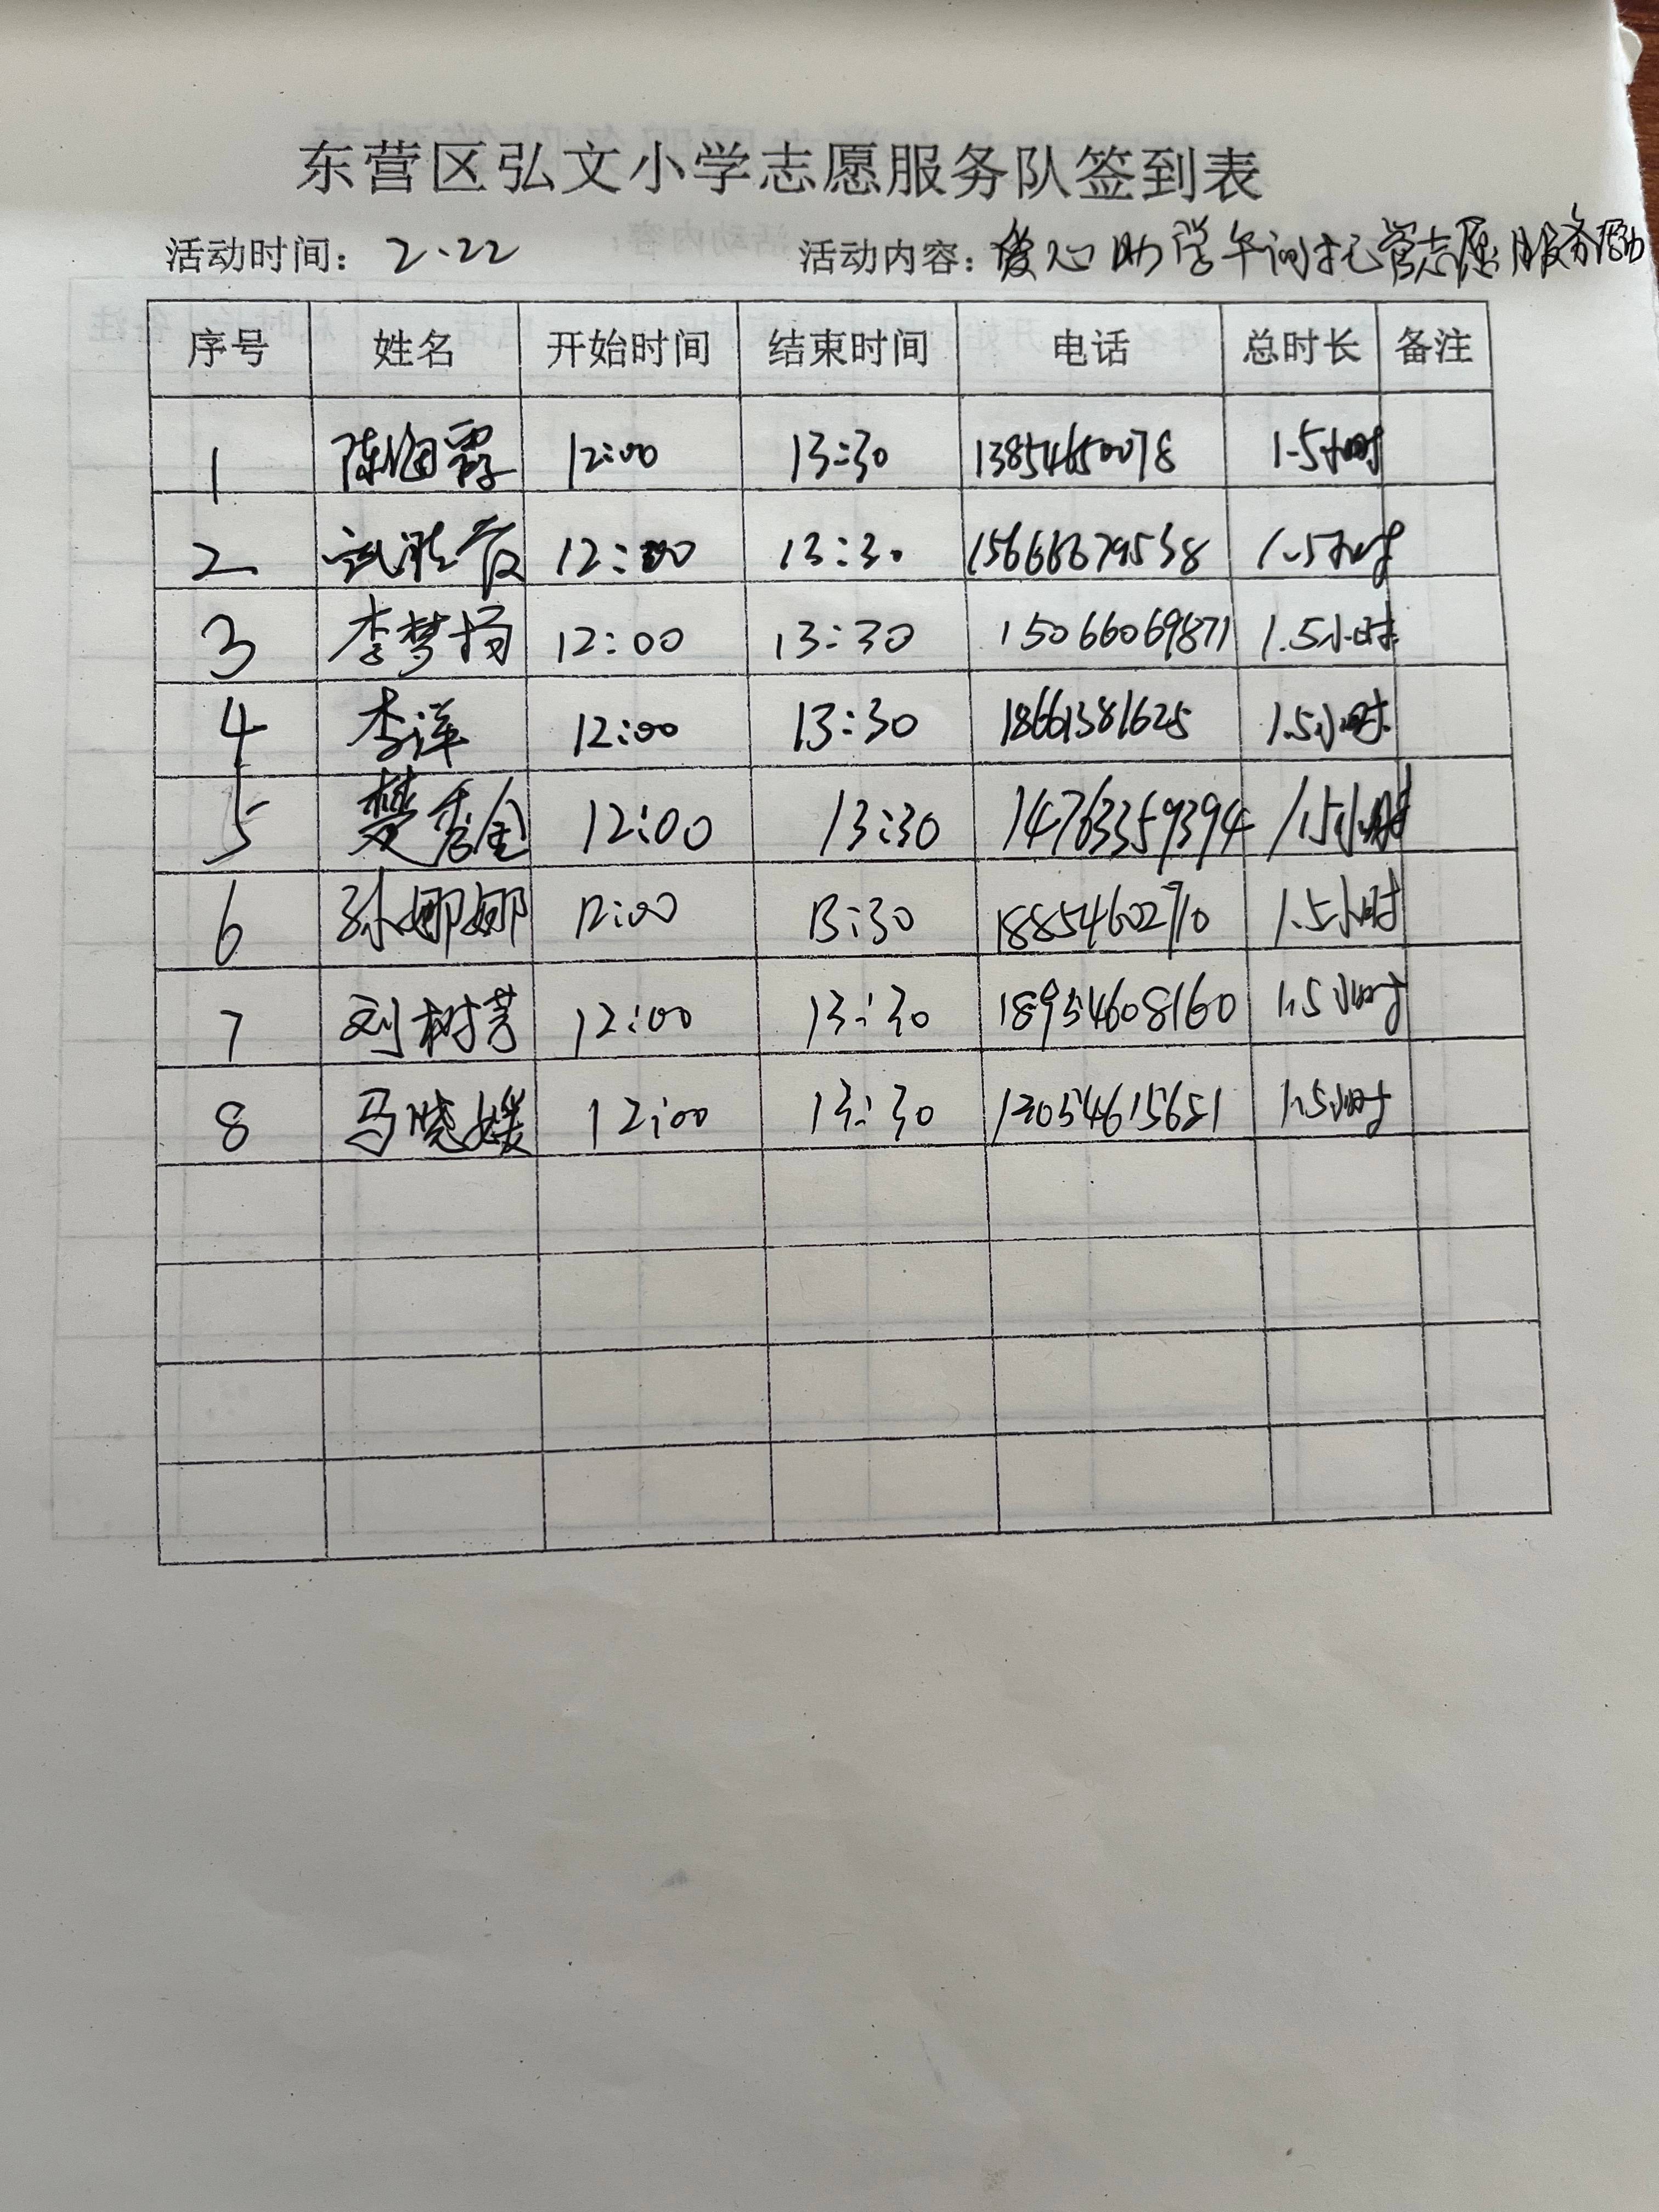 东营区弘文小学志愿服务队签到表
活动时间：2.22 活动内容：爱心助学午间托管志愿服务活动
序号 姓名 开始时间 结束时间 电话 总时长 备注
1 陈 霞 12:00 13:30 13854650078 1.5小时
2 12:00 13:30 15666679538 1.5小时
3 李梦 12:00 13:30 15066069871 1.5小时
4 李洋 12:00 13:30 18661381625 1.5小时
5 樊秀全 12:00 13:30 14763359394 1.5小时
6 孙娜娜 12:00 13:30 18854602710 1.5小时
7 刘树芳 12:00 13:30 18954608160 1.5小时
8 马晓媛 12:00 13:30 13054615651 1.5小时